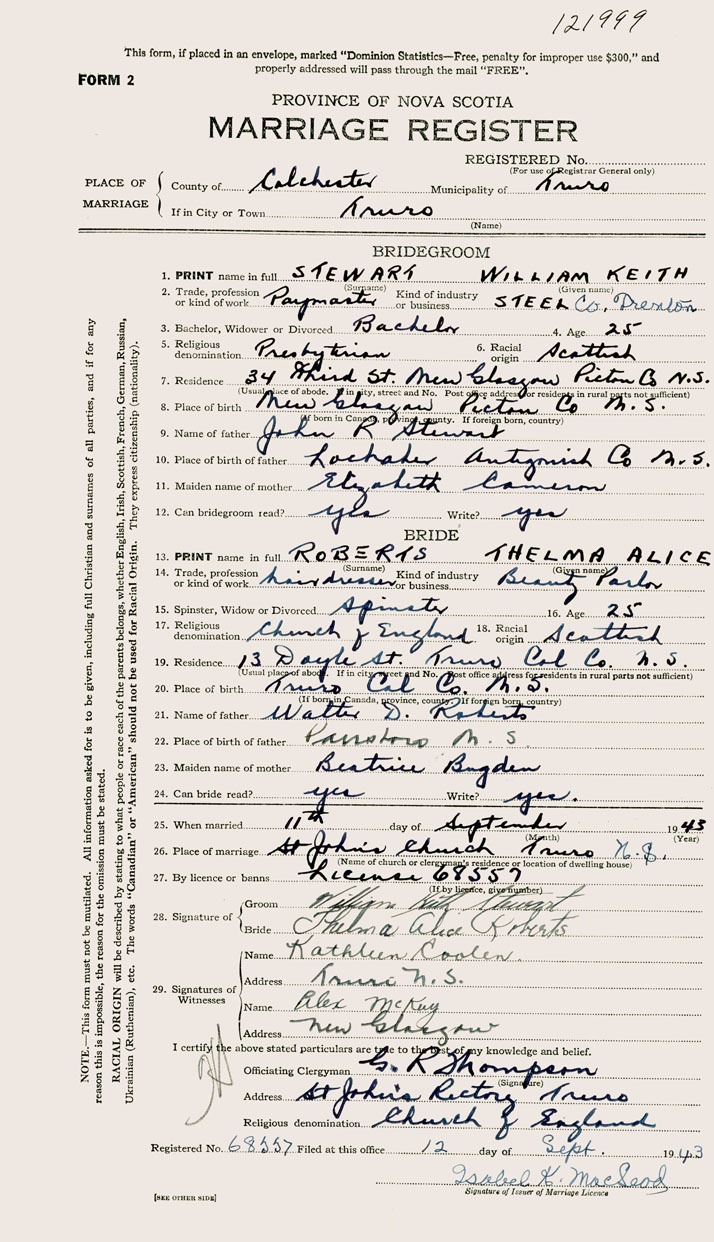 121999
This form, if placed in an envelope, marked “Dominion Statistics—Free, penalty for improper use $300,” and
properly addressed will pass through the mail “FREE”.
FORM 2
PROVINCE OF NOVA SCOTIA
MARRIAGE REGISTER
REGISTERED No.
(For use of Registrar General only)
PLACE OF MARRIAGE
County of Colchester Municipality of Truro
If in City or Town Truro
(Name)
BRIDEGROOM
1. PRINT name in full STEWART WILLIAM KEITH
(Surname) (Given name)
2. Trade, profession or kind of work Paymaster Kind of industry or business STEEL Co, Trenton
3. Bachelor, Widower or Divorced Bachelor 4. Age 25
5. Religious denomination Presbyterian 6. Racial origin Scottish
7. Residence 34 Third St. New Glasgow Pictou Co N.S.
(Usual place of abode. If in city, street and No. Post office address for residents in rural parts not sufficient)
8. Place of birth New Glasgow Pictou Co N.S.
(If born in Canada, province, county. If foreign born, country)
9. Name of father John R Stewart
10. Place of birth of father Lochaber Antigonish Co N.S.
11. Maiden name of mother Elizabeth Cameron
12. Can bridegroom read? yes Write? yes
BRIDE
13. PRINT name in full ROBERTS THELMA ALICE
(Surname) (Given name)
14. Trade, profession or kind of work hairdresser Kind of industry or business Beauty Parlor
15. Spinster, Widow or Divorced Spinster 16. Age 25
17. Religious denomination Church of England 18. Racial origin Scottish
19. Residence 13 Doyle St. Truro Col Co. N.S.
(Usual place of abode. If in city, street and No. Post office address for residents in rural parts not sufficient)
20. Place of birth Truro Col Co. N.S.
(If born in Canada, province, county. If foreign born, country)
21. Name of father Walter D. Roberts
22. Place of birth of father Parrsboro N.S.
23. Maiden name of mother Beatrice Bugden
24. Can bride read? yes Write? yes.
25. When married 11th day of September 1943
(Month) (Year)
26. Place of marriage St John's Church Truro N.S.
(Name of church or clergyman's residence or location of dwelling house)
27. By licence or banns License 68557
(If by licence, give number)
28. Signature of
Groom William Keith Stewart
Bride Thelma Alice Roberts
29. Signatures of Witnesses
Name Kathleen Coolen
Address Truro N.S.
Name Alex McKay
Address New Glasgow
I certify the above stated particulars are true to the best of my knowledge and belief.
Officiating Clergyman G. R Thompson
(Signature)
Address St John's Rectory Truro
Religious denomination Church of England
Registered No. 68557 Filed at this office 12 day of Sept. 1943
Isabel K. MacLeod
Signature of Issuer of Marriage Licence
[SEE OTHER SIDE]
NOTE.—This form must not be mutilated. All information asked for is to be given, including full Christian and surnames of all parties, and if for any
reason this is impossible, the reason for the omission must be stated.
RACIAL ORIGIN will be described by stating to what people or race each of the parents belongs, whether English, Irish, Scottish, French, German, Russian,
Ukrainian (Ruthenian), etc. The words “Canadian” or “American” should not be used for Racial Origin. They express citizenship (nationality).